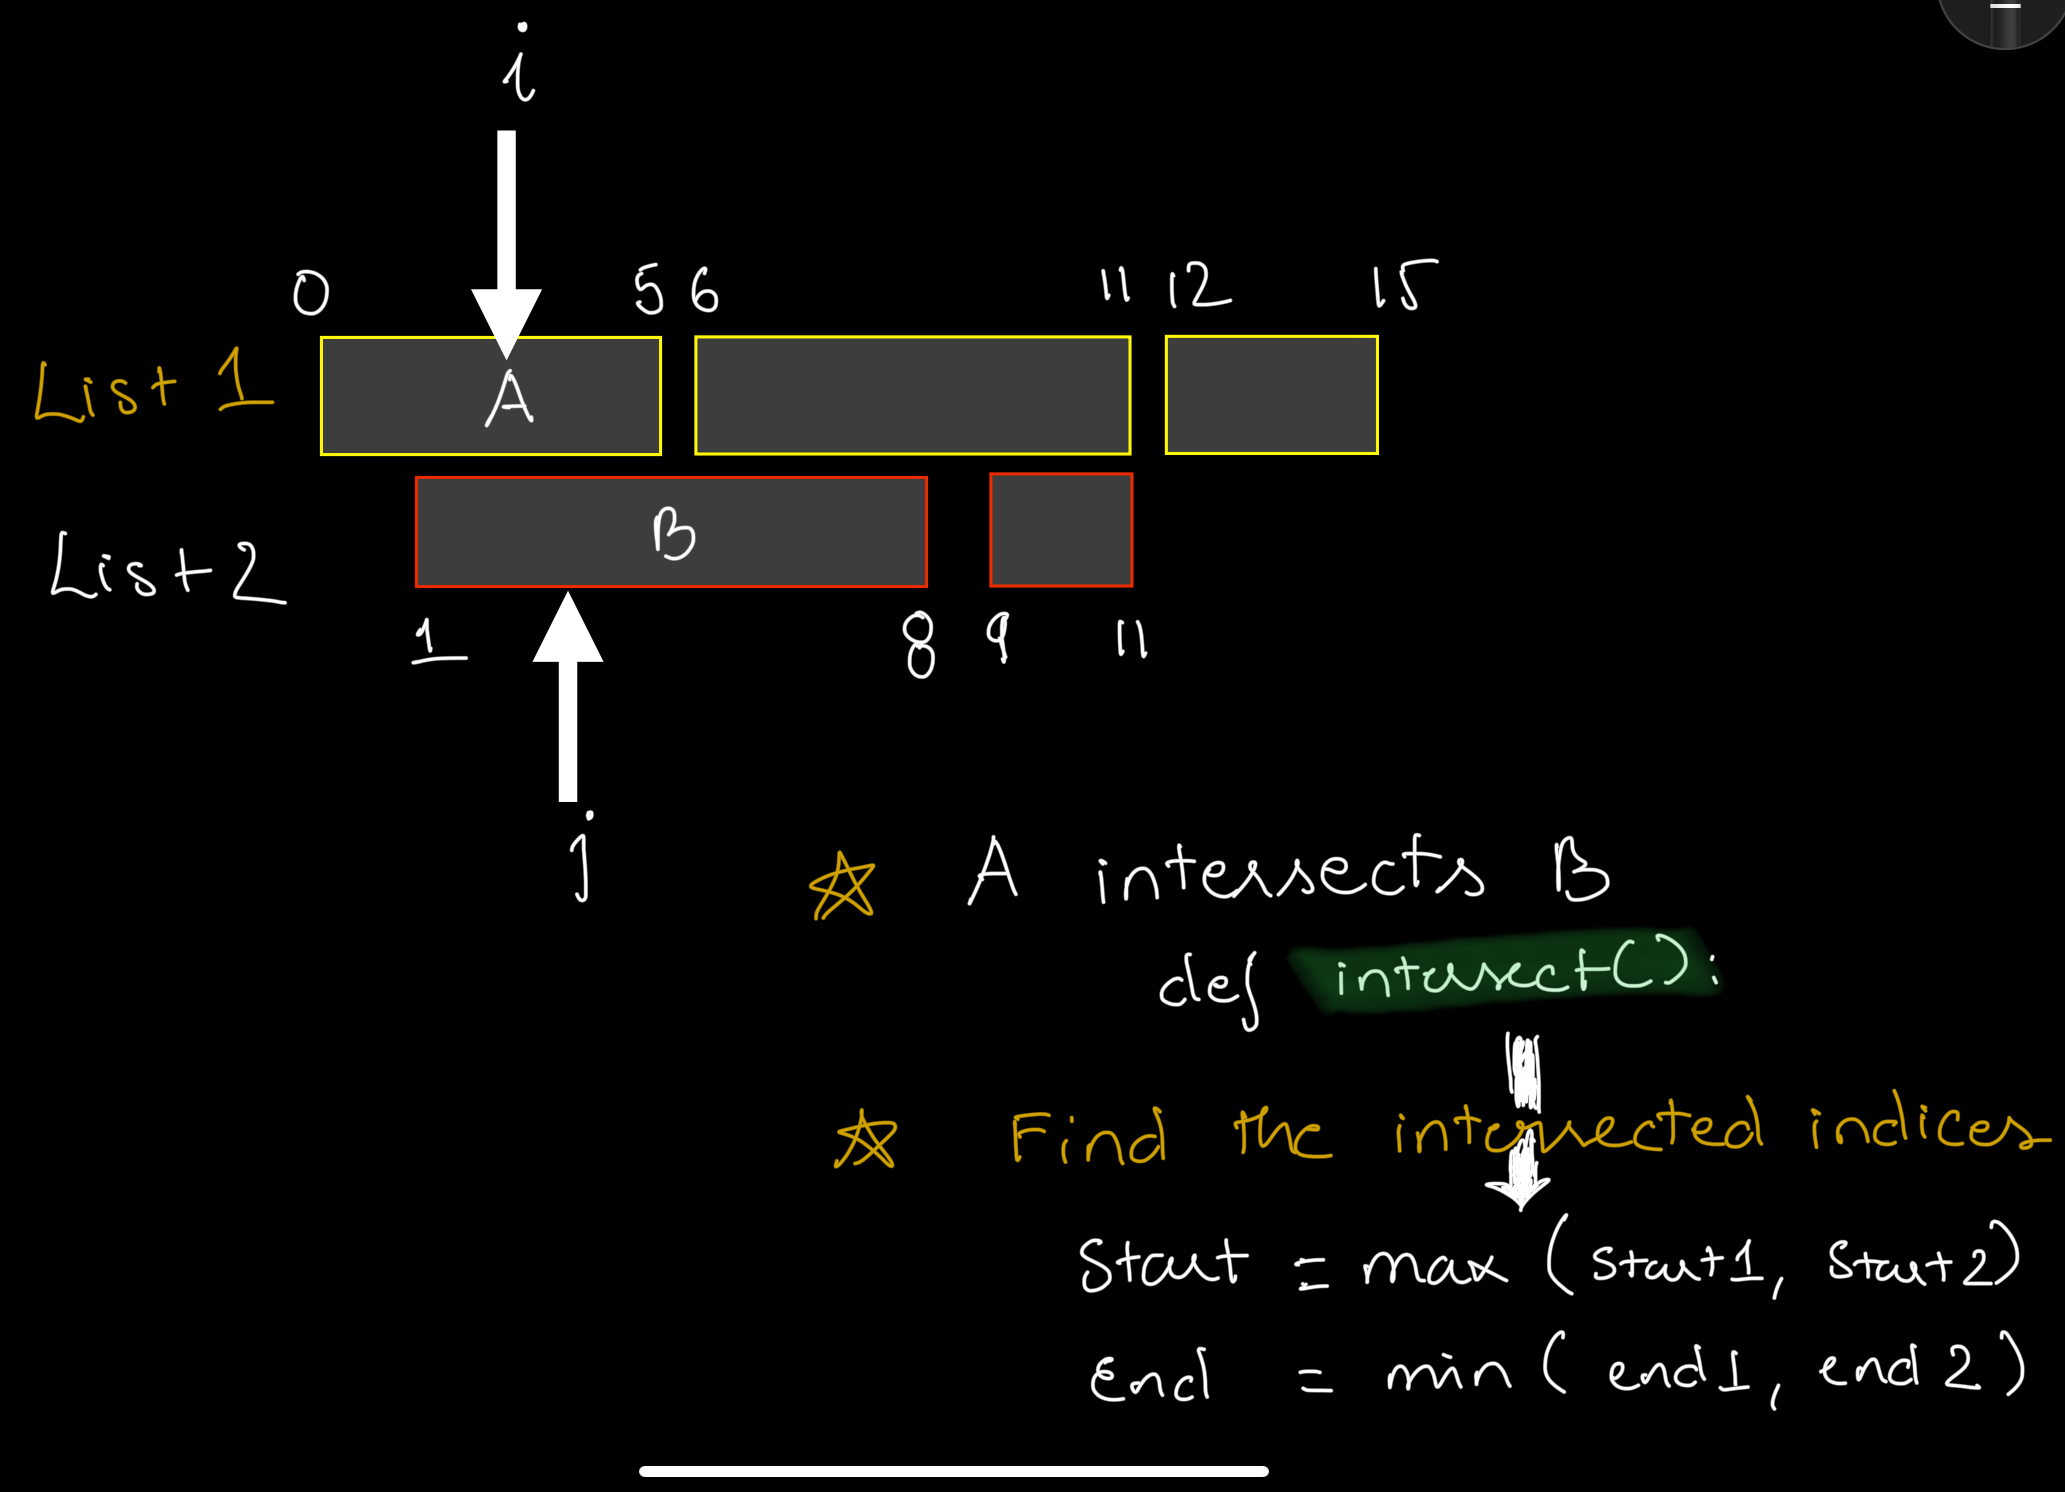 i
0 5 6 11 12 15
List 1
A
B
List 2
1 8 9 11
j
A intersects B
def intersect():
Find the intersected indices
Start = max (start1, start2)
End = min ( end1, end 2 )